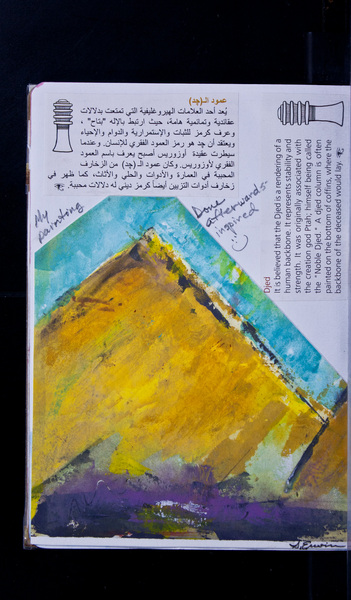 عمود الـ(چد)
يُعد أحد العلامات الهيروغليفية التي تمتعت بدلالات
عقائدية وتمائمية هامة، حيث ارتبط بالإله "بتاح" ،
وعرف كرمز للثبات والإستمرارية والدوام والإحياء
ويعتقد أن چد هو رمز العمود الفقري للإنسان. وعندما
سيطرت عقيدة أوزوريس أصبح يعرف باسم العمود
الفقري لأوزوريس. وكان عمود الـ (چد) من الزخارف
المحببة في العمارة والأدوات والحلي والأثاث، كما ظهر في
زخارف أدوات التزيين أيضاً كرمز ديني له دلالات محببة.
Djed
It is believed that the Djed is a rendering of a
human backbone. It represents stability and
strength. It was originally associated with
the creation god Ptah; himself being called
the "Noble Djed." A djed column is often
painted on the bottom of coffins, where the
backbone of the deceased would lay.
My
painting
Done
afterwards-
inspired